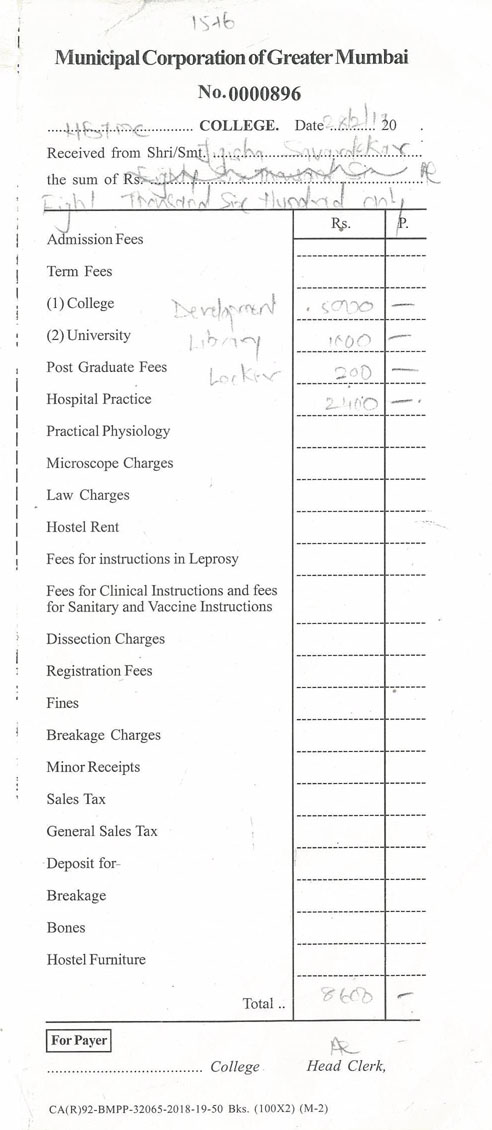 1546
Municipal Corporation of Greater Mumbai
No. 0000896
HBTMC COLLEGE. Date 20 .
Received from Shri/Smt.
the sum of Rs.
Eight Thousand Six Hundred only
Rs. P.
Admission Fees
Term Fees
(1) College Development 5000 —
(2) University Library 1000 —
Post Graduate Fees Locker 200 —
Hospital Practice 2400 —
Practical Physiology
Microscope Charges
Law Charges
Hostel Rent
Fees for instructions in Leprosy
Fees for Clinical Instructions and fees
for Sanitary and Vaccine Instructions
Dissection Charges
Registration Fees
Fines
Breakage Charges
Minor Receipts
Sales Tax
General Sales Tax
Deposit for-
Breakage
Bones
Hostel Furniture
Total .. 8600 —
For Payer
College Head Clerk,
CA(R)92-BMPP-32065-2018-19-50 Bks. (100X2) (M-2)